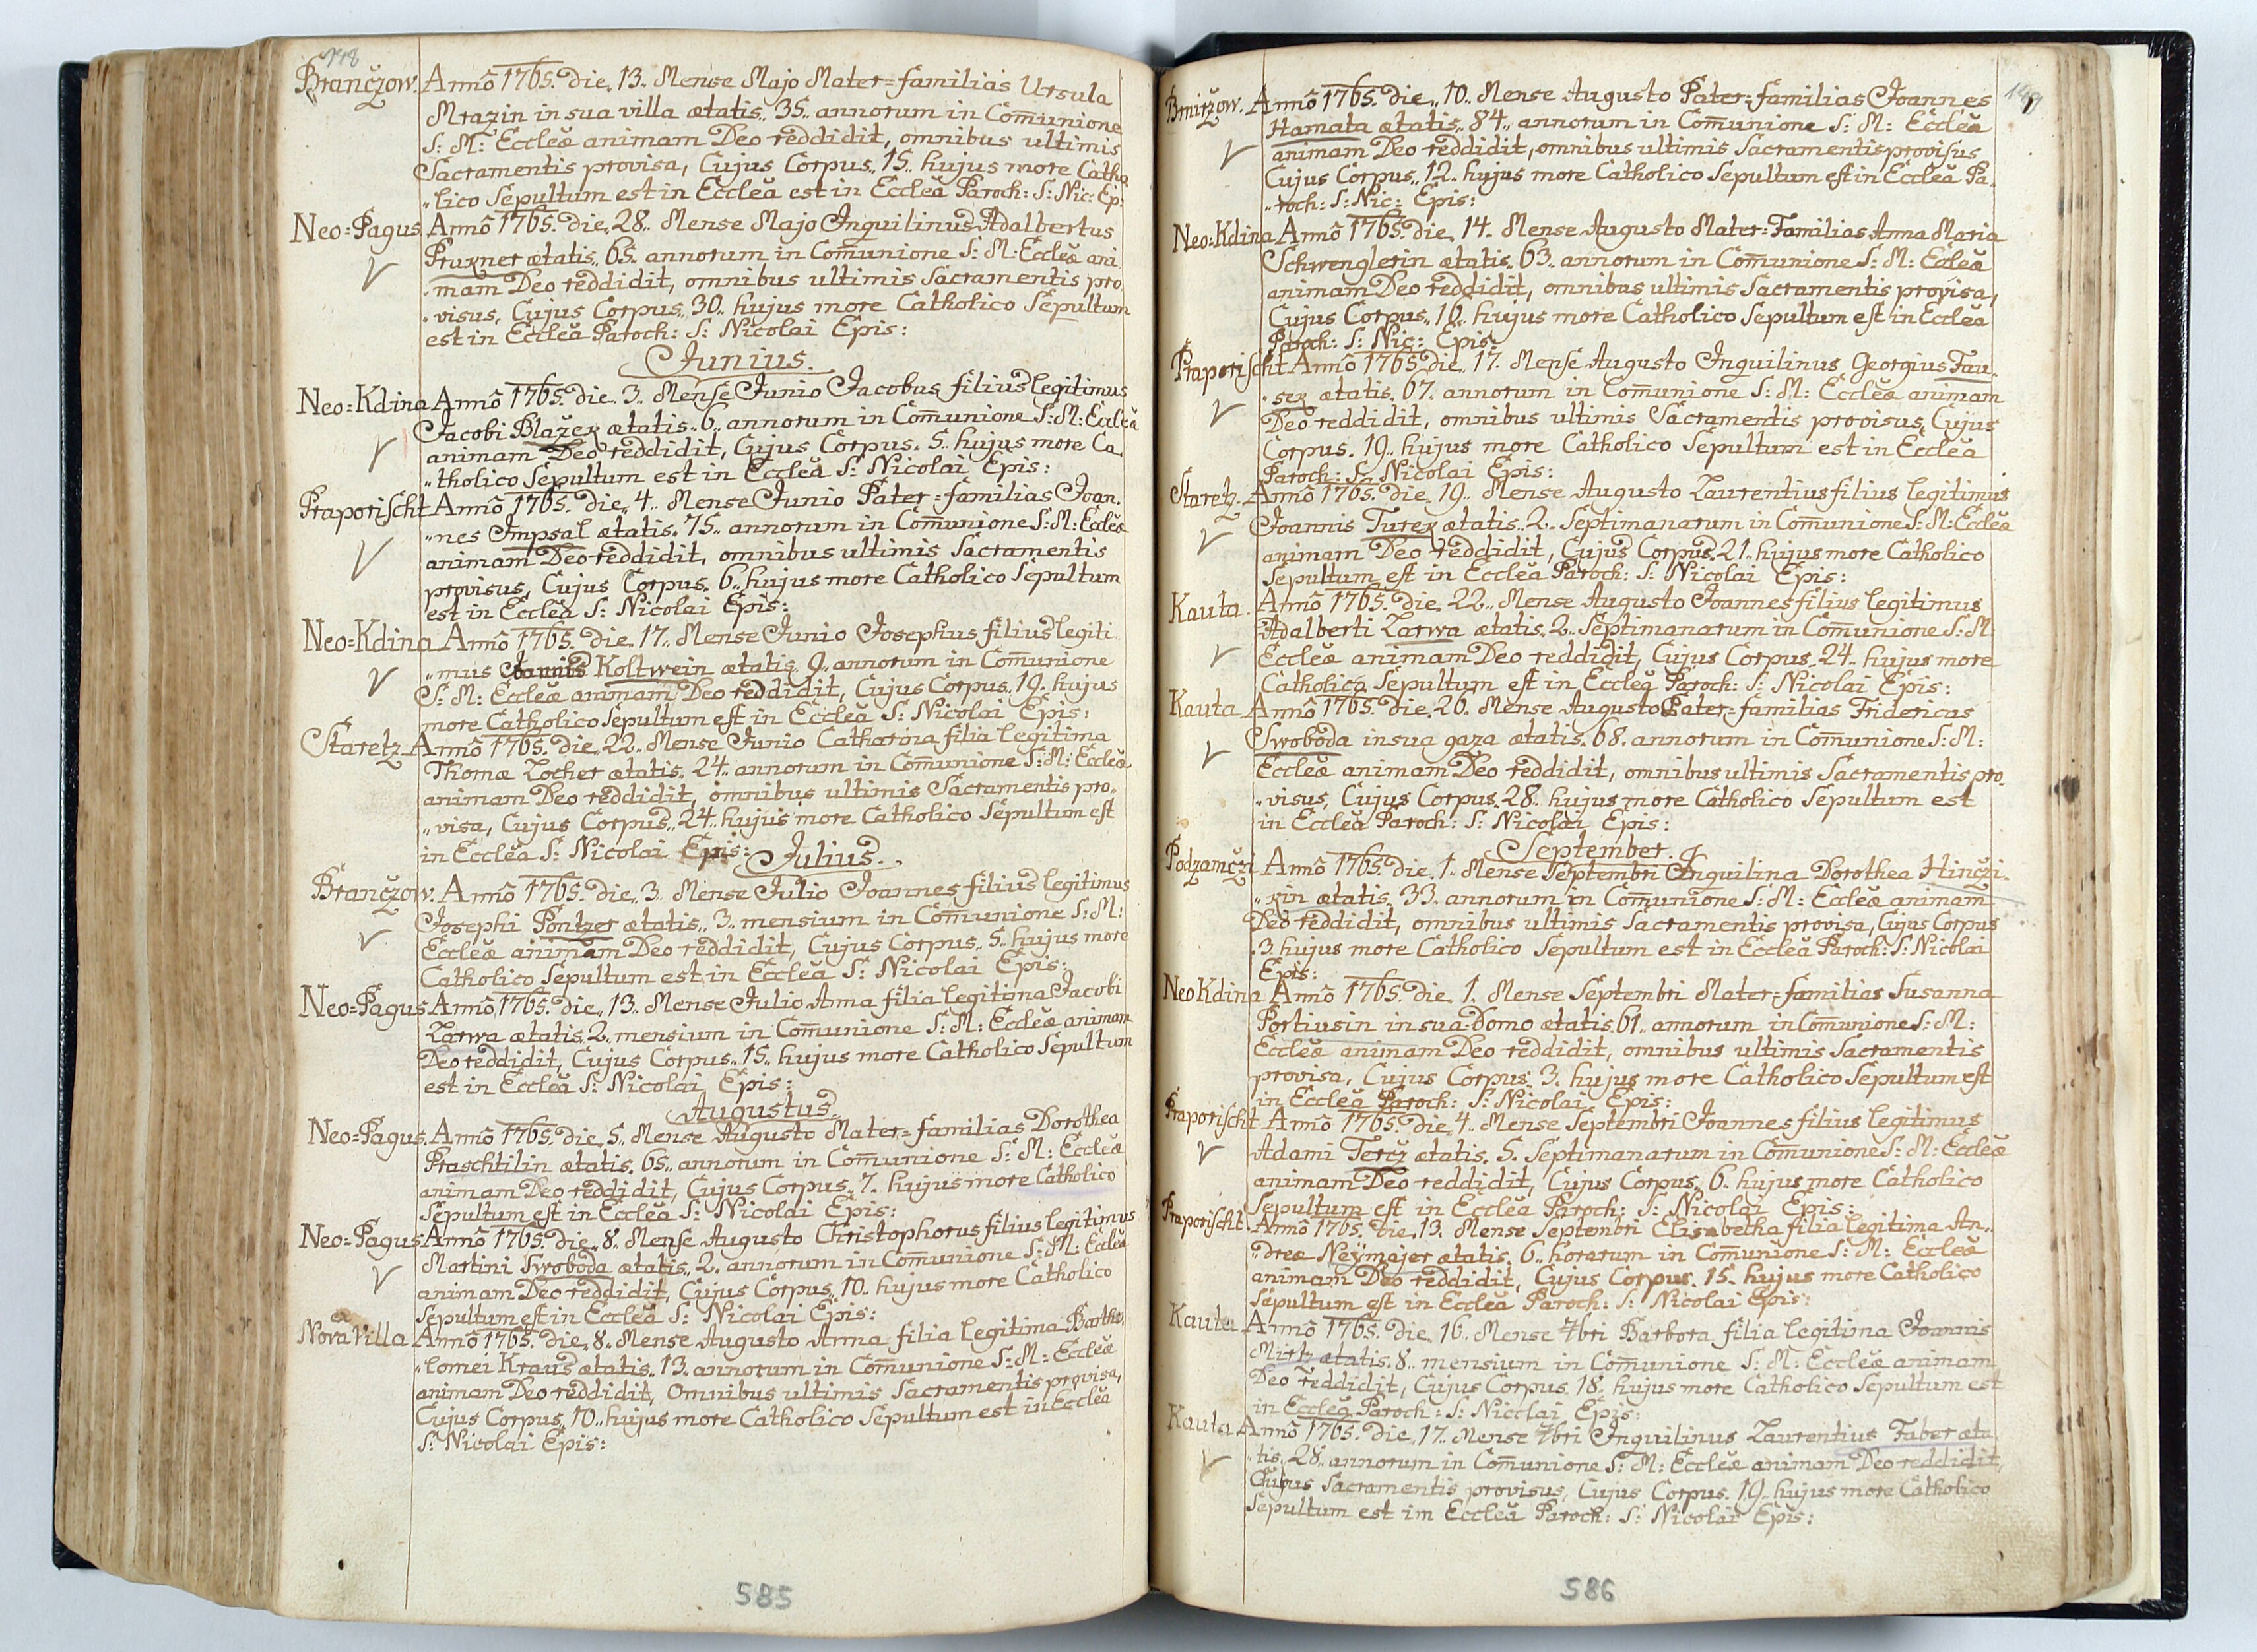 148
Brančzow. Annô 1765. die. 13. Mense Majo Mater=familias Ursula
Mrazin in sua villa ætatis. 35. annorum in Com̄unione
S: M: Eccleæ animam Deo reddidit, omnibus ultimis
Sacramentis provisa, Cujus Corpus. 15. hujus more Catho
„lico Sepultum est in Ecclea est in Ecclea Paroch: S: Nic: Ep:
Neo=Pagus Annô 1765. die. 28. Mense Majo Inquilinus Adalbertus
Pruxner ætatis. 65. annorum in Com̄unione S: M: Eccleæ ani
„mam Deo reddidit, omnibus ultimis Sacramentis pro
„visus, Cujus Corpus. 30. hujus more Catholico Sepultum
est in Ecclea Paroch: S: Nicolai Epis:
Junius.
Neo=Kdina Annô 1765. die. 3. Mense Junio Jacobus filius legitimus
Jacobi Blažex ætatis. 6. annorum in Com̄unione S: M: Eccleæ
animam Deo reddidit, Cujus Corpus. 5. hujus more Ca
„tholico Sepultum est in Ecclea S: Nicolai Epis:
Praporischt Annô 1765. die. 4. Mense Junio Pater=familias Joan.
„nes Impsal ætatis. 75. annorum in Com̄unione S: M: Eccleæ
animam Deo reddidit, omnibus ultimis Sacramentis
provisus, Cujus Corpus. 6. hujus more Catholico Sepultum
est in Ecclea S: Nicolai Epis:
Neo=Kdina Annô 1765. die. 17. Mense Junio Josephus filius legiti
„mus Joannis Koltwein ætatis. 9. annorum in Com̄unione
S: M: Eccleæ animam Deo reddidit, Cujus Corpus. 19. hujus
more Catholico Sepultum est in Ecclea S: Nicolai Epis:
Staretz Annô 1765. die. 22. Mense Junio Catharina filia legitima
Thomæ Locher ætatis. 24. annorum in Com̄unione S: M: Eccleæ
animam Deo reddidit, omnibus ultimis Sacramentis pro„
„visa, Cujus Corpus. 24. hujus more Catholico Sepultum est
in Ecclea S: Nicolai Epis: Julius.
Brančzow. Annô 1765. die. 3. Mense Julio Joannes filius legitimus
Josephi Pontzer ætatis. 3. mensium in Com̄unione S: M:
Eccleæ animam Deo reddidit, Cujus Corpus. 5. hujus more
Catholico Sepultum est in Ecclea S: Nicolai Epis:
Neo=Pagus Annô 1765. die. 13. Mense Julio Anna filia legitima Jacobi
Larwa ætatis. 2. mensium in Com̄unione S: M: Eccleæ animam
Deo reddidit, Cujus Corpus. 15. hujus more Catholico Sepultum
est in Ecclea S: Nicolai Epis:
Augustus.
Neo=Pagus. Annô 1765. die. 5. Mense Augusto Mater=familias Dorothea
Praschtilin ætatis. 65. annorum in Com̄unione S: M: Eccleæ
animam Deo reddidit, Cujus Corpus. 7. hujus more Catholico
Sepultum est in Ecclea S: Nicolai Epis:
Neo=Pagus Annô 1765. die. 8. Mense Augusto Christophorus filius legitimus
Martini Swoboda ætatis. 2. annorum in Com̄unione S: M: Eccleæ
animam Deo reddidit, Cujus Corpus. 10. hujus more Catholico
Sepultum est in Ecclea S: Nicolai Epis:
Nova Villa Annô 1765. die. 8. Mense Augusto Anna filia legitima Bartho.
„lomei Kraus ætatis. 13. annorum in Com̄unione S: M: Eccleæ
animam Deo reddidit, Omnibus ultimis Sacramentis provisa,
Cujus Corpus. 10. hujus more Catholico Sepultum est in Ecclea
S: Nicolai Epis:
585
149
Brniržow. Annô 1765. die. 10. Mense Augusto Pater=familias Joannes
Hamata ætatis. 84. annorum in Com̄unione S: M: Eccleæ
animam Deo reddidit, omnibus ultimis Sacramentis provisus
Cujus Corpus. 12. hujus more Catholico Sepultum est in Ecclea Pa.
„roch: S: Nic: Epis:
Neo=Kdina Annô 1765. die. 14. Mense Augusto Mater=Familias Anna Maria
Schwenglerin ætatis. 63. annorum in Com̄unione S: M: Eccleæ
animam Deo reddidit, omnibus ultimis Sacramentis provisa,
Cujus Corpus. 16. hujus more Catholico Sepultum est in Ecclea
Paroch: S: Nic: Epis:
Praporischt Annô 1765. die. 17. Mense Augusto Inquilinus Georgius Fau.
„sex ætatis. 67. annorum in Com̄unione S: M: Eccleæ animam
Deo reddidit, omnibus ultimis Sacramentis provisus, Cujus
Corpus. 19. hujus more Catholico Sepultum est in Ecclea
Paroch: S: Nicolai Epis:
Staretz. Annô 1765. die. 19. Mense Augusto Laurentius filius legitimus
Joannis Turex ætatis. 2. Septimanarum in Com̄unione S: M: Eccleæ
animam Deo reddidit, Cujus Corpus. 21. hujus more Catholico
Sepultum est in Ecclea Paroch: S: Nicolai Epis:
Kauta. Annô 1765. die. 22. Mense Augusto Joannes filius legitimus
Adalberti Larwa ætatis. 2. Septimanarum in Com̄unione S: M:
Eccleæ animam Deo reddidit, Cujus Corpus. 24. hujus more
Catholico Sepultum est in Ecclea Paroch: S: Nicolai Epis:
Kauta Annô 1765. die. 26. Mense Augusto Pater=familias Fridericus
Swoboda in sua gaza ætatis. 68. annorum in Com̄unione S: M:
Eccleæ animam Deo reddidit, omnibus ultimis Sacramentis pro.
„visus, Cujus Corpus. 28. hujus more Catholico Sepultum est
in Ecclea Paroch: S: Nicolai Epis:
September.
Podzamčzi Annô 1765. die. 1. Mense Septembri Inquilina Dorothea Hinčzi.
„xin ætatis. 33. annorum in Com̄unione S: M: Eccleæ animam
Deo reddidit, omnibus ultimis Sacramentis provisa, Cujus Corpus
.3. hujus more Catholico Sepultum est in Ecclea Paroch: S: Nicolai
Epis:
Neo Kdina Annô 1765. die. 1. Mense Septembri Mater=familias Susanna
Portiusin in sua Domo ætatis. 61. annorum in Com̄unione S: M:
Eccleæ animam Deo reddidit, omnibus ultimis Sacramentis
provisa, Cujus Corpus. 3. hujus more Catholico Sepultum est
in Ecclea Paroch: S: Nicolai Epis:
Praporischt Annô 1765. die. 4. Mense Septembri Joannes filius legitimus
Adami Terčz ætatis. 5. Septimanarum in Com̄unione S: M: Eccleæ
animam Deo reddidit, Cujus Corpus. 6. hujus more Catholico
Sepultum est in Ecclea Paroch: S: Nicolai Epis:
Praporischt Annô 1765. die. 13. Mense Septembri Elisabetha filia legitima An„
„dreæ Neÿmajer ætatis. 6. horarum in Com̄unione S: M: Eccleæ
animam Deo reddidit, Cujus Corpus. 15. hujus more Catholico
Sepultum est in Ecclea Paroch: S: Nicolai Epis:
Kauta Annô 1765. die. 16. Mense 7bri Barbora filia legitima Joannis
Mirtz ætatis. 8. mensium in Com̄unione S: M: Eccleæ animam
Deo reddidit, Cujus Corpus. 18. hujus more Catholico Sepultum est
in Ecclea Paroch: S: Nicolai Epis:
Kauta Annô 1765. die. 17. Mense 7bri Inquilinus Laurentius Faber æta
„tis. 28. annorum in Com̄unione S: M: Eccleæ animam Deo reddidit,
Sacramentis provisus, Cujus Corpus. 19. hujus more Catholico
Sepultum est im Ecclea Paroch: S: Nicolai Epis:
586